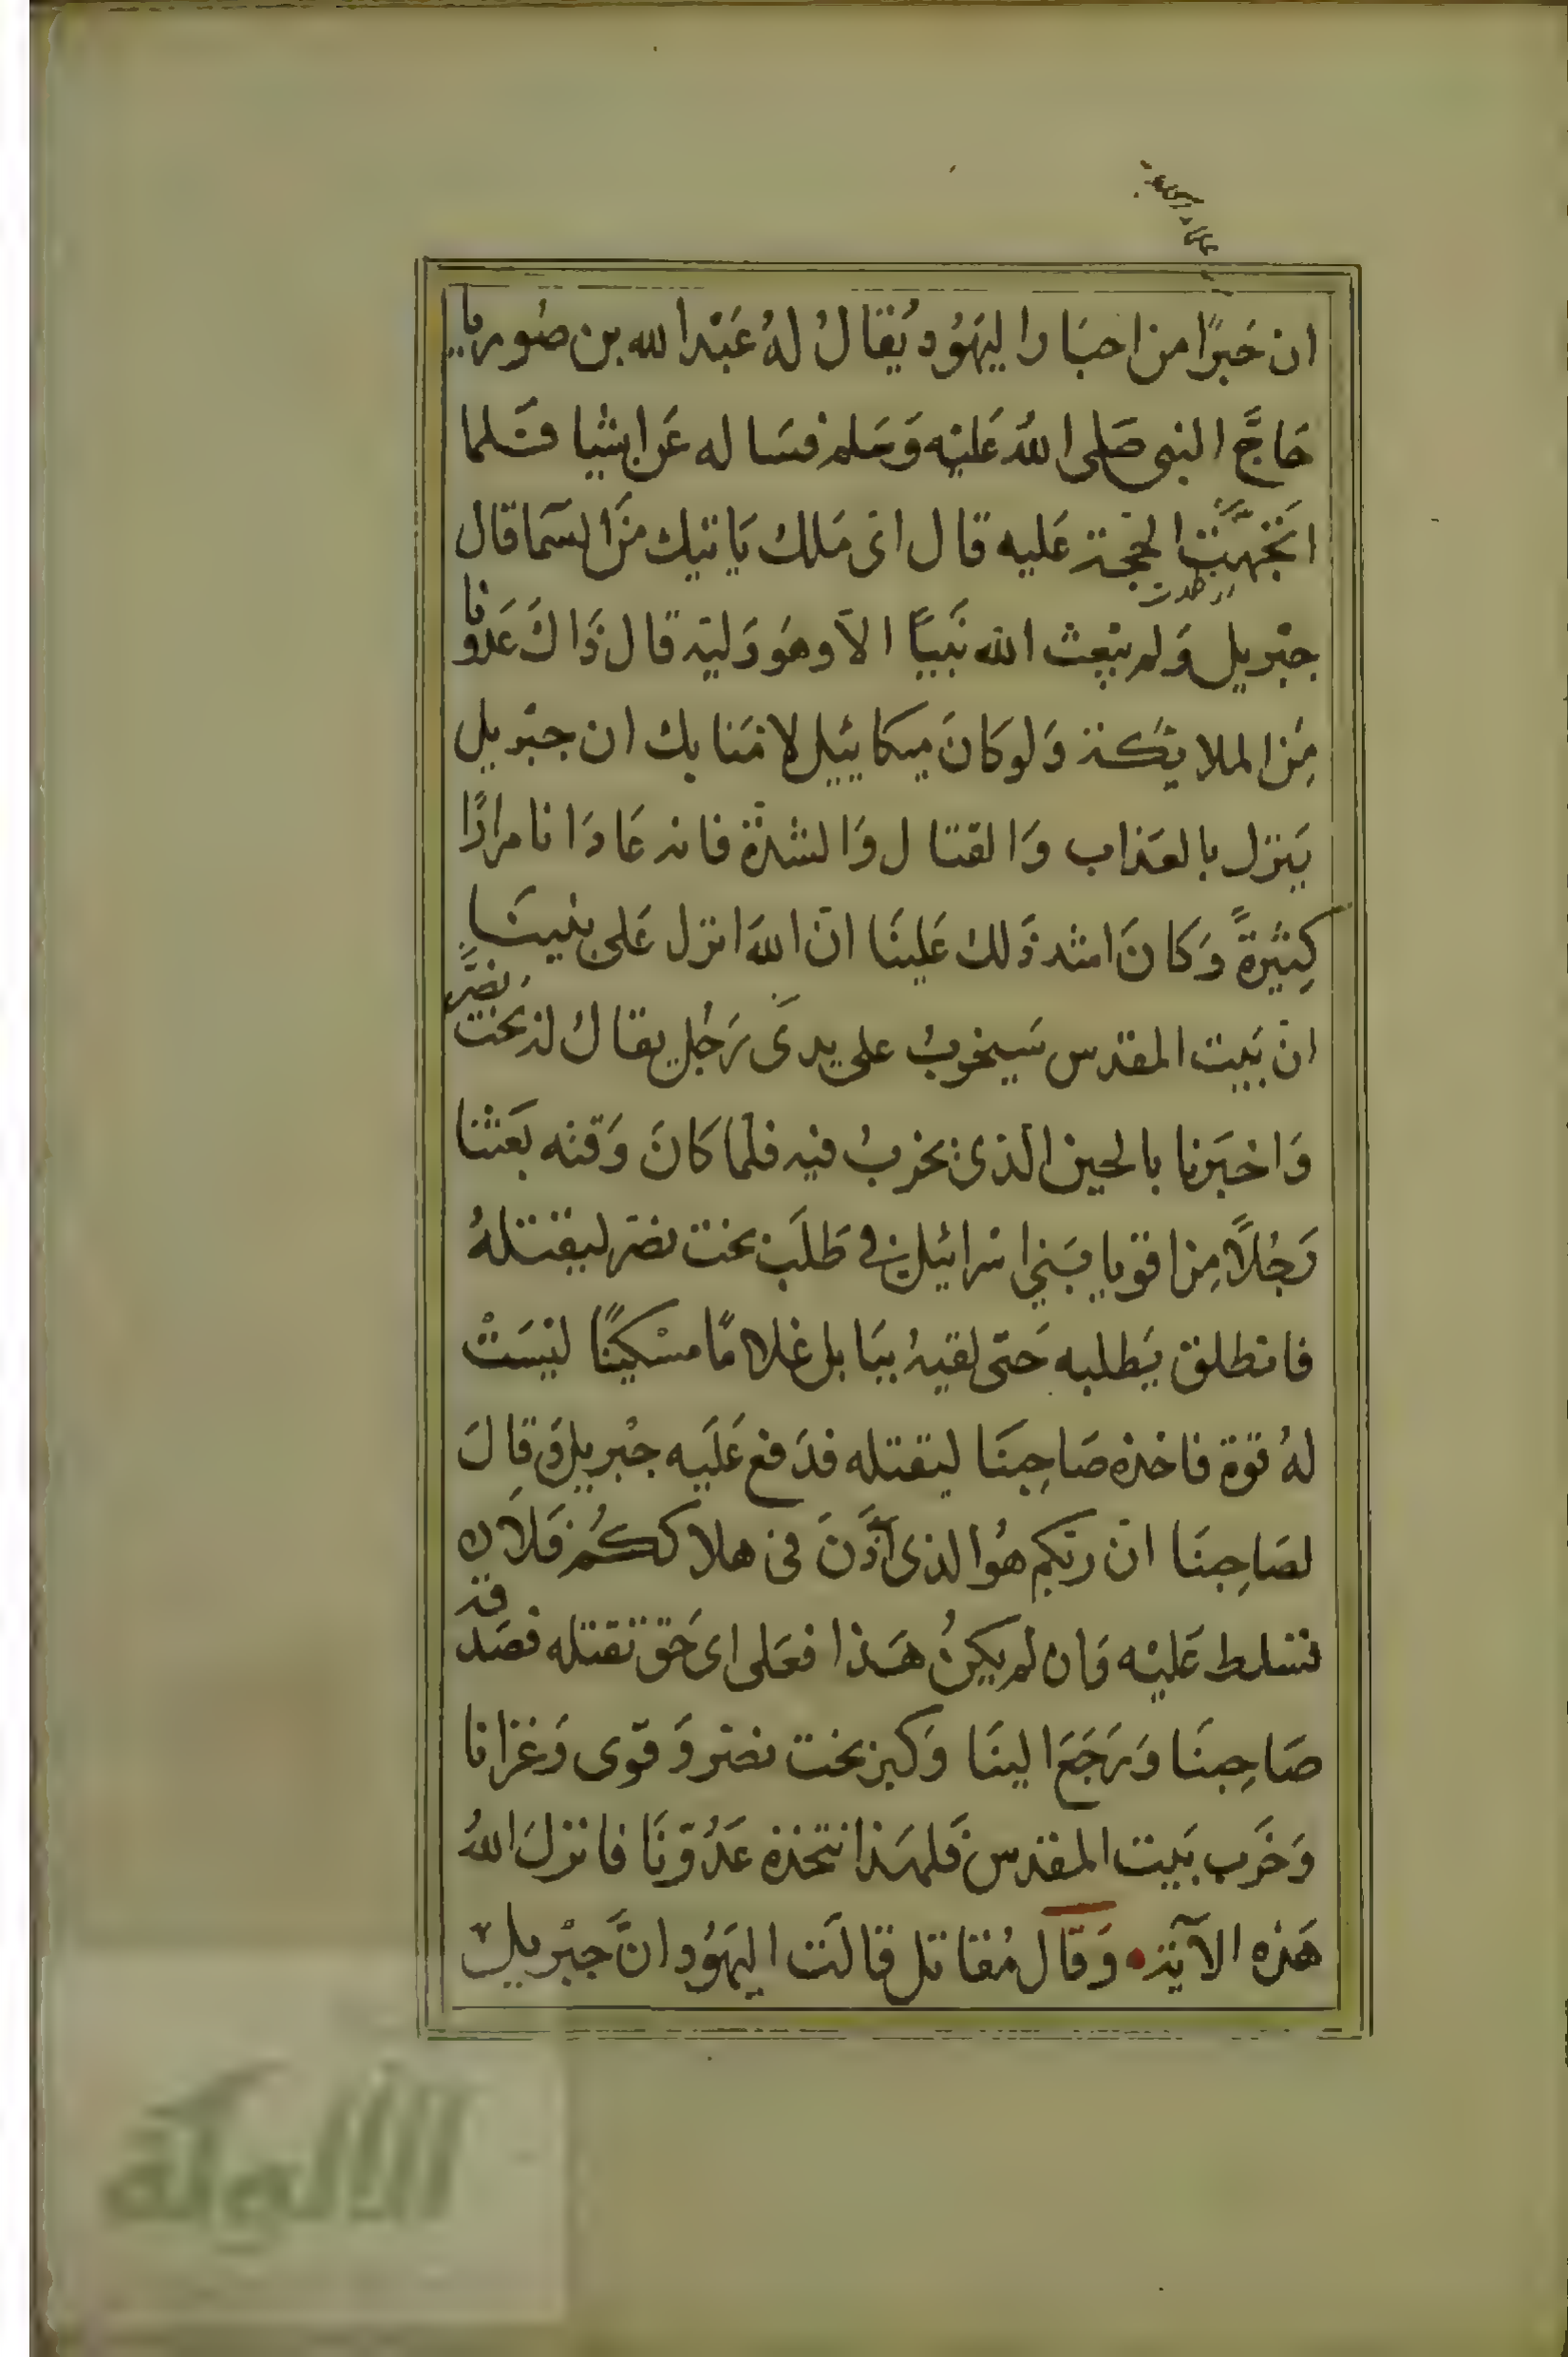 ان حَبرًا من احبَار اليهَوُد يُقالُ لهُ عَبْد الله بن صُوريا
حَاجَّ النبى صَلى اللهُ عَليْه وَسَلم فسَاله عَن اشيا فَلما
اتجَهَّت الحجة عَليه قال اى مَلك يَاتيك منَ السّمَا قال
جبْريل وَلم يبْعث الله نَبيًا الاّ وهَو وَليه قال ذَاكَ عَدُونا
مِن الملايكة وَلو كانَ ميكاييَل لامَنا بك ان جبْريل
يَنزل بالعَذاب وَالقتال وَالشدّة فانه عَادَانا مرارًا
كِثيرةً وَكانَ اشد ذَلك عَلينَا انّ اللهَ انزل عَلى نبينَا
انّ بَيت المقدس سَيخربُ على يدىَ رَجُل يقالُ له بخت نصَّر
وَاخبَرنا بالحين الذى يخربُ فيه فلمّا كانَ وَقته بَعثْنا
رَجُلاً مِن اقويا بَني اسْرائيل في طَلَب بخت نصّر ليقتلهُ
فانطلق يَطلبه حَتى لقيهُ ببَابل غلامًا مسْكينًا ليسَتْ
لهُ قوّة فاخذه صَاحِبنَا ليقتله فدَفع عَلَيه جبْريل وَقالَ
لصَاحِبنَا انّ ربكم هُوا لذى اَذَّنَ فى هلاككُم فلاَن
تسَلط عَليْه وَان لم يكنُ هَذا فعَلى اى حَق تقتله فصَدقه
صَاحِبنَا وَرَجَعَ الينَا وَكبر بخت نصّر وَقوّى وَغزانا
وَخرَب بَيت المقدس فَلهَذا نتخذه عَدُوّنَا فانزلَ اللهُ
هَذه الآيَة وَقال مُقاتل قالَت اليهَوُد انَّ جبْريل
الألوكة